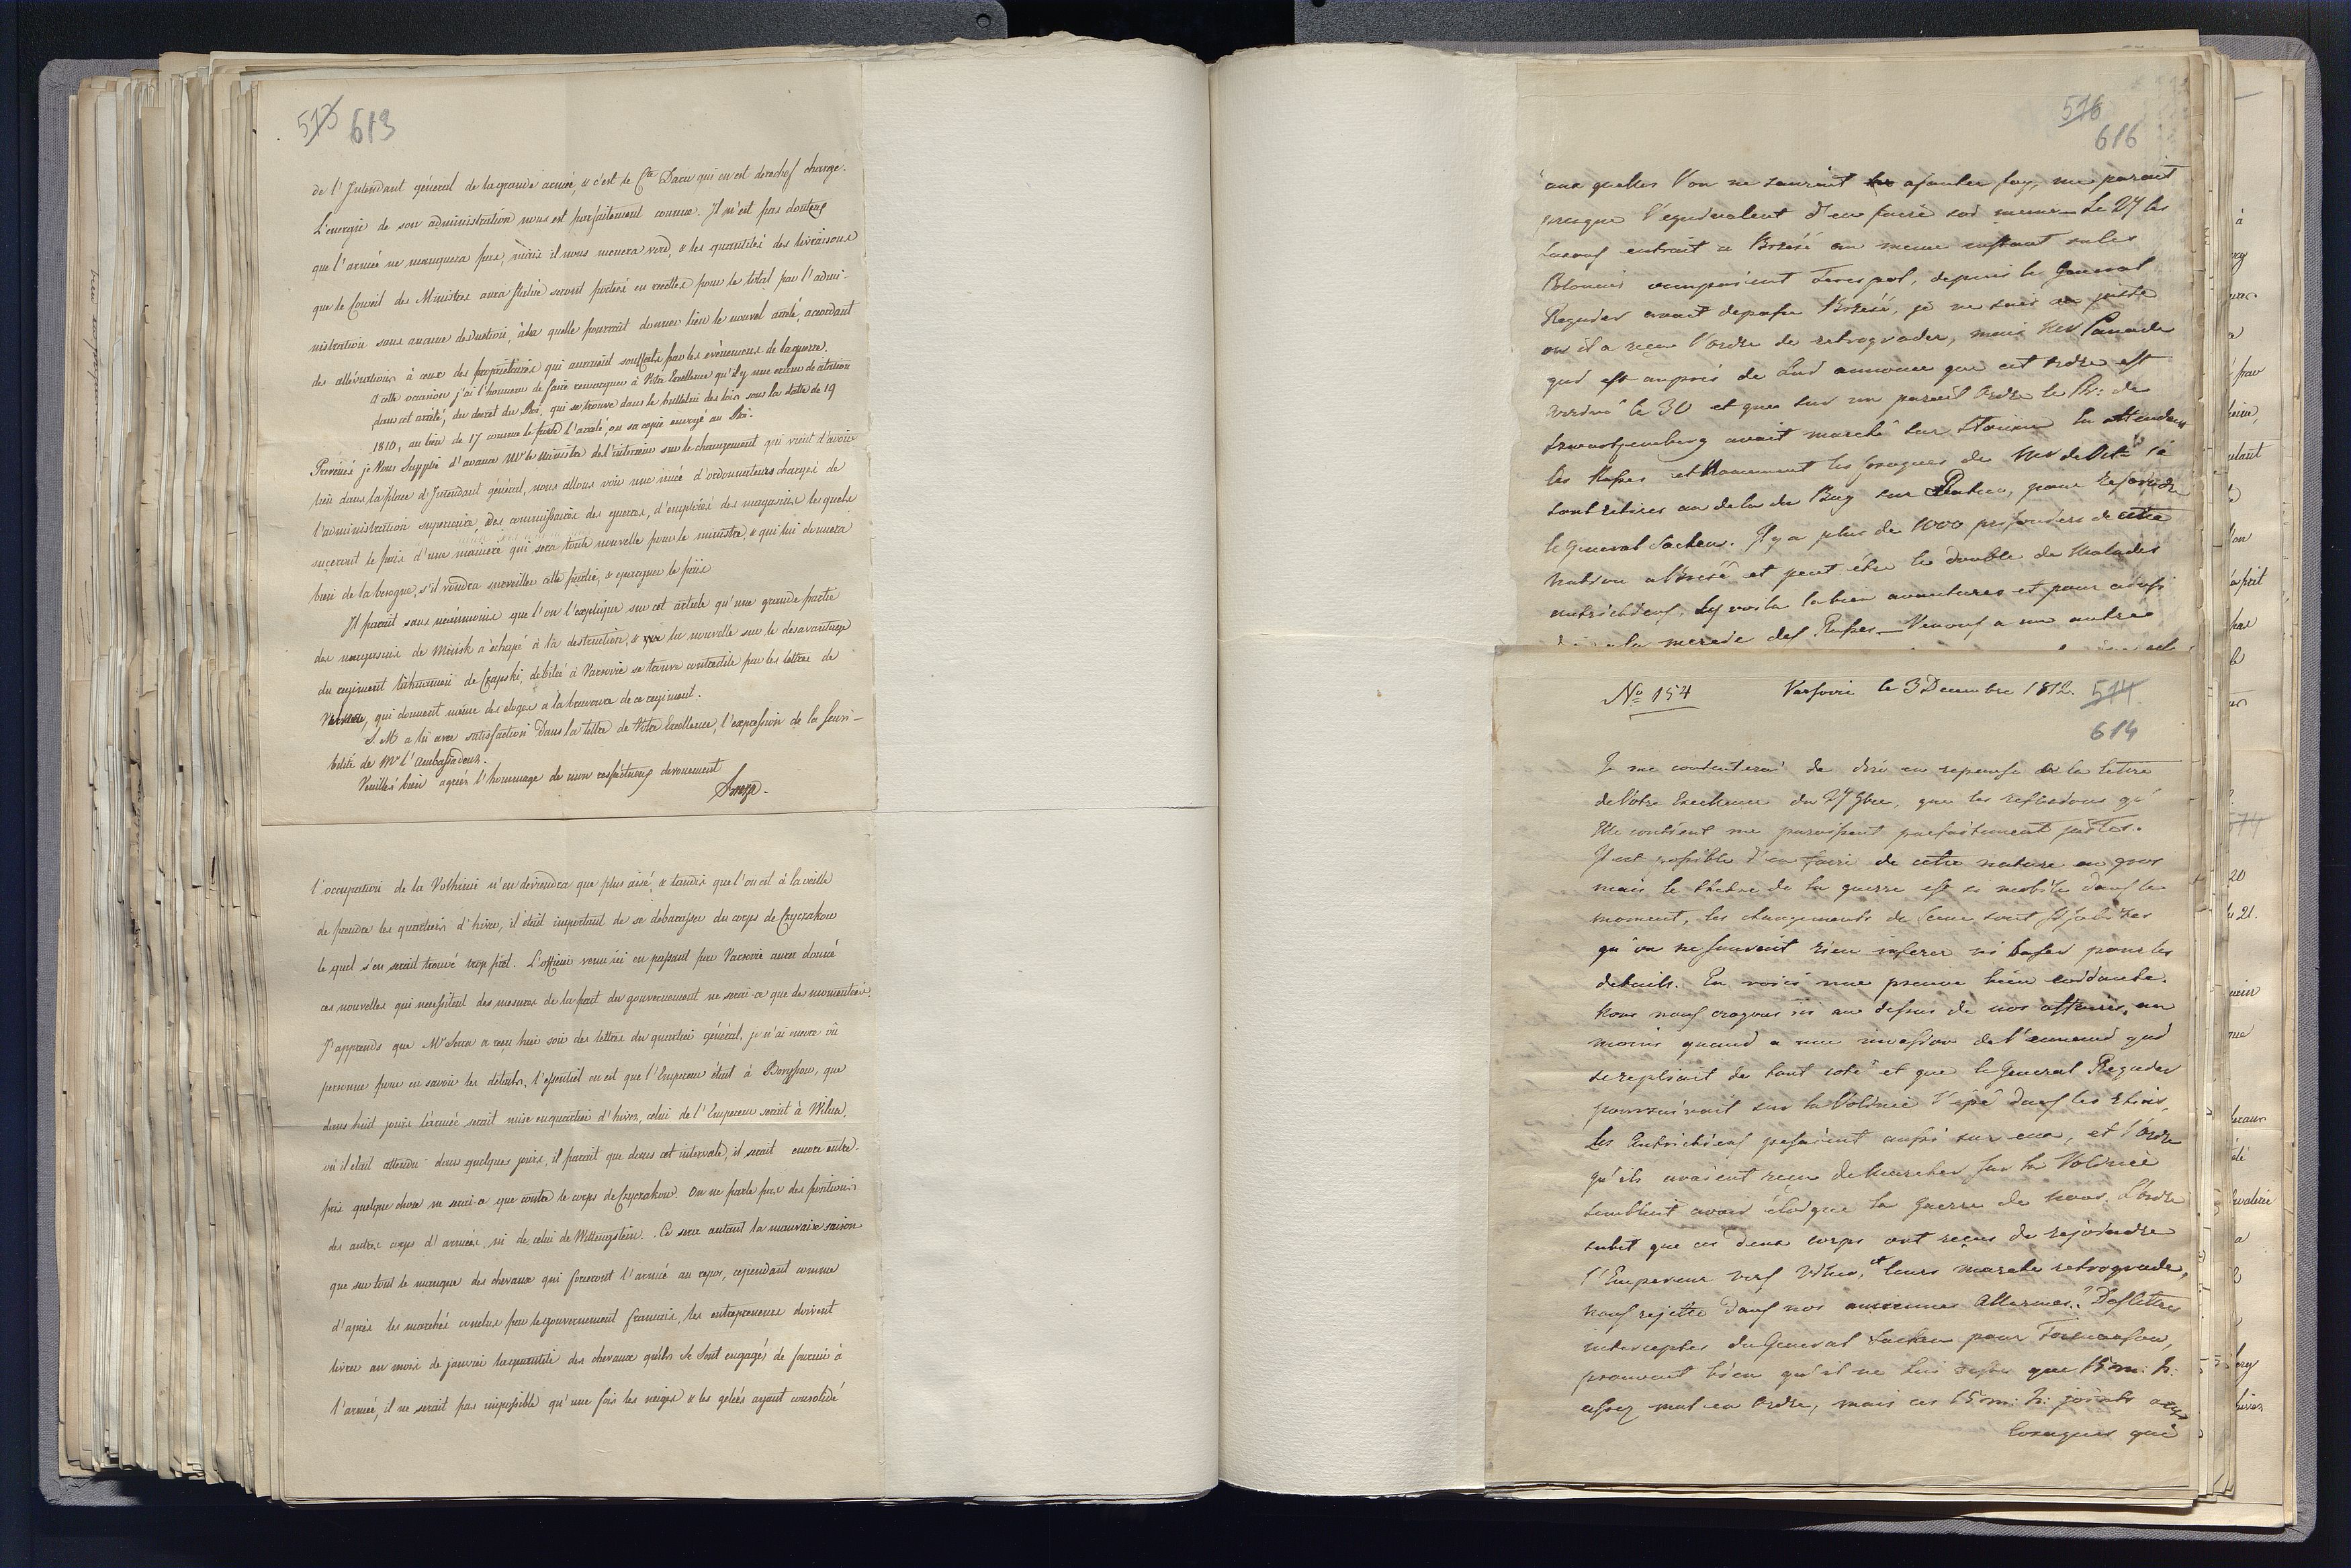 513 613
de l'Intendant général de la grande armée, & c'est le Cte Daru qui en est derechef chargé.
L'energie de son administration nous est parfaitement connue. Il n'est pas douteux
que l'armée ne manquera pas, mais il nous menera verd, & les quantités des livraisons
que le Conseil des Ministres aura statué seront portées en recette pour le total par l'admi-
nistration sans aucune deduction, à la quelle pourrait donner lieu le nouvel arrêté, accordant
des alléviations à ceux des proprietaires qui auraient souffert par les evènemens de la guerre.
A cette occasion j'ai l'honneur de faire remarquer à Votre Excellence qu'il y a une erreur de citation
dans cet arrêté, du decret du Roi, qui se trouve dans le bulletin des lois sous la datte de 19
1810, au lieu de 17 comme le porte l'arrêté, ou sa copie envoyé au Roi.
Prevenés je Vous supplie d'avance Mr le Ministre de l'interieur sur le changement qui vient d'avoir
lieu dans la place d'Intendant général, nous allons voir une nuée d'ordonnateurs chargés de
l'administration superieure, des commissaires des guerres, d'emploiés des magasins les quels
suceront le païs d'une manière qui sera toute nouvelle pour le ministre, & qui lui donnera
bien de la besogne, s'il voudra surveiller cette partie, & epargner le païs
Il parait sans neanmoins que l'on l'explique sur cet article qu'une grande partie
des magasins de Minsk a échapé à la destruction, & la nouvelle sur le desavantage
du regiment lithuanien de Czapski, debitée à Varsovie se trouve contredite par les lettres de
qui donnent même des eloges à la bravoure de ce regiment.
S. M a lu avec satisfaction dans la lettre de Votre Excellence, l'expression de la sensi-
bilité de Mr l'ambassadeur.
Veuillés bien agréer l'hommage de mon respectueux devouement
l'occupation de la Volhinie n'en deviendra que plus aisé, & tandis que l'on est à la veille
de prendre les quartiers d'hiver, il était important de se debarasser du corps de Czyczakow
le quel s'en serait trouvé trop près. L'officier venu ici en passant par Varsovie aura donné
ces nouvelles qui necessitent des mesures de la part du gouvernement ne serai-ce que de momentané.
J'apprends que Mr Serra a reçu hier soir des lettres du quartier général, je n'ai encore vû
personne pour en savoir les details, l'essentiel en est que l'Empereur était à Borysow, que
dans huit jours l'armée serait mise en quartier d'hiver, celui de l'Empereur serait à Wilna,
où il etait attendu dans quelques jours, il parait que dans cet intervale, il serait encore entre-
pris quelque chose ne serai-ce que contre le corps de Czyczakow. On ne parle pas des positions
des autres corps d'armée, ni de celui de Wittengstein. Ce sera autant la mauvaise saison
que surtout le manque des chevaux qui forceront l'armée au repos, cependant comme
d'après les marchés conclus par le gouvernement français, les entrepreneurs doivent
livrer au mois de janvier la quantité des chevaux qu'ils se sont engagés de fournir à
l'armée, il ne serait pas impossible qu'une fois les neiges & les gelées ayant consolidé
516
616
aux quelles l'on ne saurait ajouter foy, me parait
presque l'equivalent d'en faire soi meme. Le 27 les
entrait a Brzesć au meme instant ou les
Polonais occupaient Terespol, depuis le General
Regnier avait depassé Brzesć, je ne sais au juste
ou il a reçu l'ordre de retrograder, mais Mr
qui est auprès de Lui annonce que cet ordre est
arrivé le 30 et que sur un pareil ordre le Pr: de
Schwartzenberg avait marché sur Slonim. En attendant
les Russes et Nommement les cosaques de
sont retirés au dela du Bug sur pour rejoindre
le General Sacken. Il y a plus de 1000 prisoniers de cette
Nation a Brzesć et peut être le double de Malades
autrichiens. Les voila la bien avanturés et pour ainsi
a la merci des Russes. Venons a un autre
No 154 Varsovie le 3 Decembre 1812. 514
614
Je me contenterai de dire en reponse a la lettre
de Votre Excellence du 27 9bre, que les reflexions qu'
Elle contient me paraissent parfaitement justes.
Il est possible d'en faire de cette nature en gros
mais le théatre de la guerre est si mobile dans le
moment, les changements de Scene sont si subites
qu'on ne sauroit rien inferer ni baser pour les
details. En voici une preuve bien evidente.
Nous nous croyons ici au dessus de nos affaires, au
moins quand a une invasion de l'ennemi qui
se repliait de tout coté et que le General Regnier
poursuivait sur la Volinie l'epé dans les Reins,
les Autrichiens pesaient aussi sur eux, et l'Ordre
qu'ils avaient reçu de marcher sur la Volinie
semblait avoir éloigné la guerre de nous. L'ordre
subit que ces deux corps ont reçus de rejoindre
l'Empereur vers Wilna, et leurs marche retrograde,
nous rejette dans nos anciennes Allarmes. Des lettres
interceptes du General Sacken pour Tormansow,
prouvent bien qu'il ne lui reste que 15 m: h:
assez mal en Ordre, mais ces 15 m: h: joints aux
Cosaques que